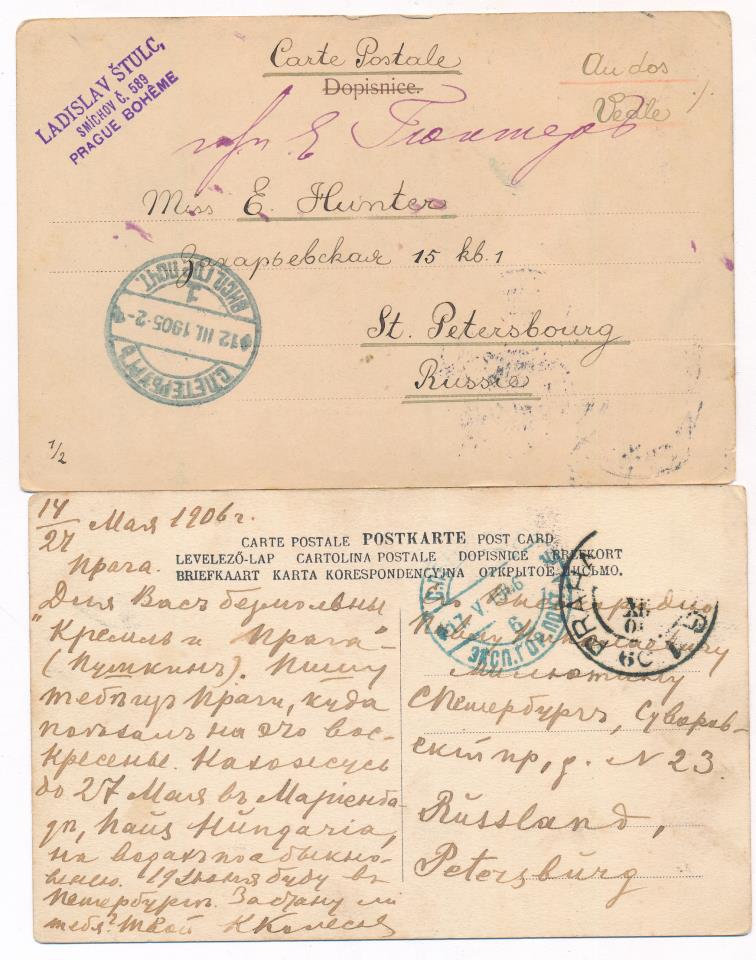 LADISLAV ŠTULC,
SMÍCHOV Č. 589
PRAGUE BOHÊME
Carte Postale
Dopisnice.
Au dos
Miss E. Hunter
Захарьевская 15 кв. 1
St. Petersbourg
Russie
С.ПЕТЕРБУРГЪ
12 III. 1905 - 2 -
1
1/2
14/27 Мая 1906 г.
Прага.
Для Васъ безмолвны
"Кремль и Прага"
(Пушкинъ). Пишу
тебѣ изъ Праги, куда
поѣхалъ на это вос-
кресенье. Нахожусь
до 27 Мая въ Маріенба-
дѣ, Haus Hungaria,
на водахъ по обыкно-
венію. 19 Іюня буду въ
Петербургѣ. Застану ли
тебя? Твой
CARTE POSTALE POSTKARTE POST CARD
LEVELEZŐ-LAP CARTOLINA POSTALE DOPISNICE BREFKORT
BRIEFKAART KARTA KORESPONDENCYJNA ОТКРЫТОЕ ПИСЬМО.
ЭКСП. ГОР. ПОЧТ
17 V
6
PRAHA
Его Высокородію
Павлу Николаевичу
Милютину
С Петербургъ, Суворов-
скій пр., д. N 23.
Russland,
Petersburg